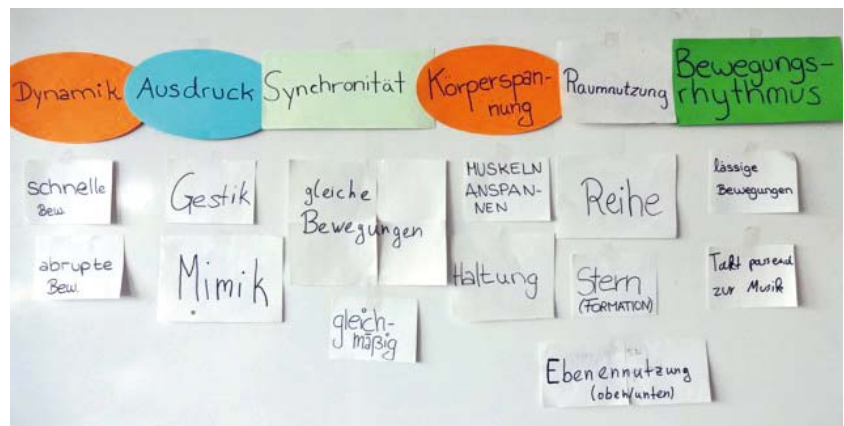 Dynamik
Ausdruck
Synchronität
Körperspan-
nung
Raumnutzung
Bewegungs-
rhythmus
schnelle
Bew.
abrupte
Bew.
Gestik
Mimik
gleiche
Bewegungen
gleich-
mäßig
MUSKELN
ANSPAN-
NEN
Haltung
Reihe
Stern
(FORMATION)
Ebenennutzung
(oben/unten)
lässige
Bewegungen
Takt passend
zur Musik